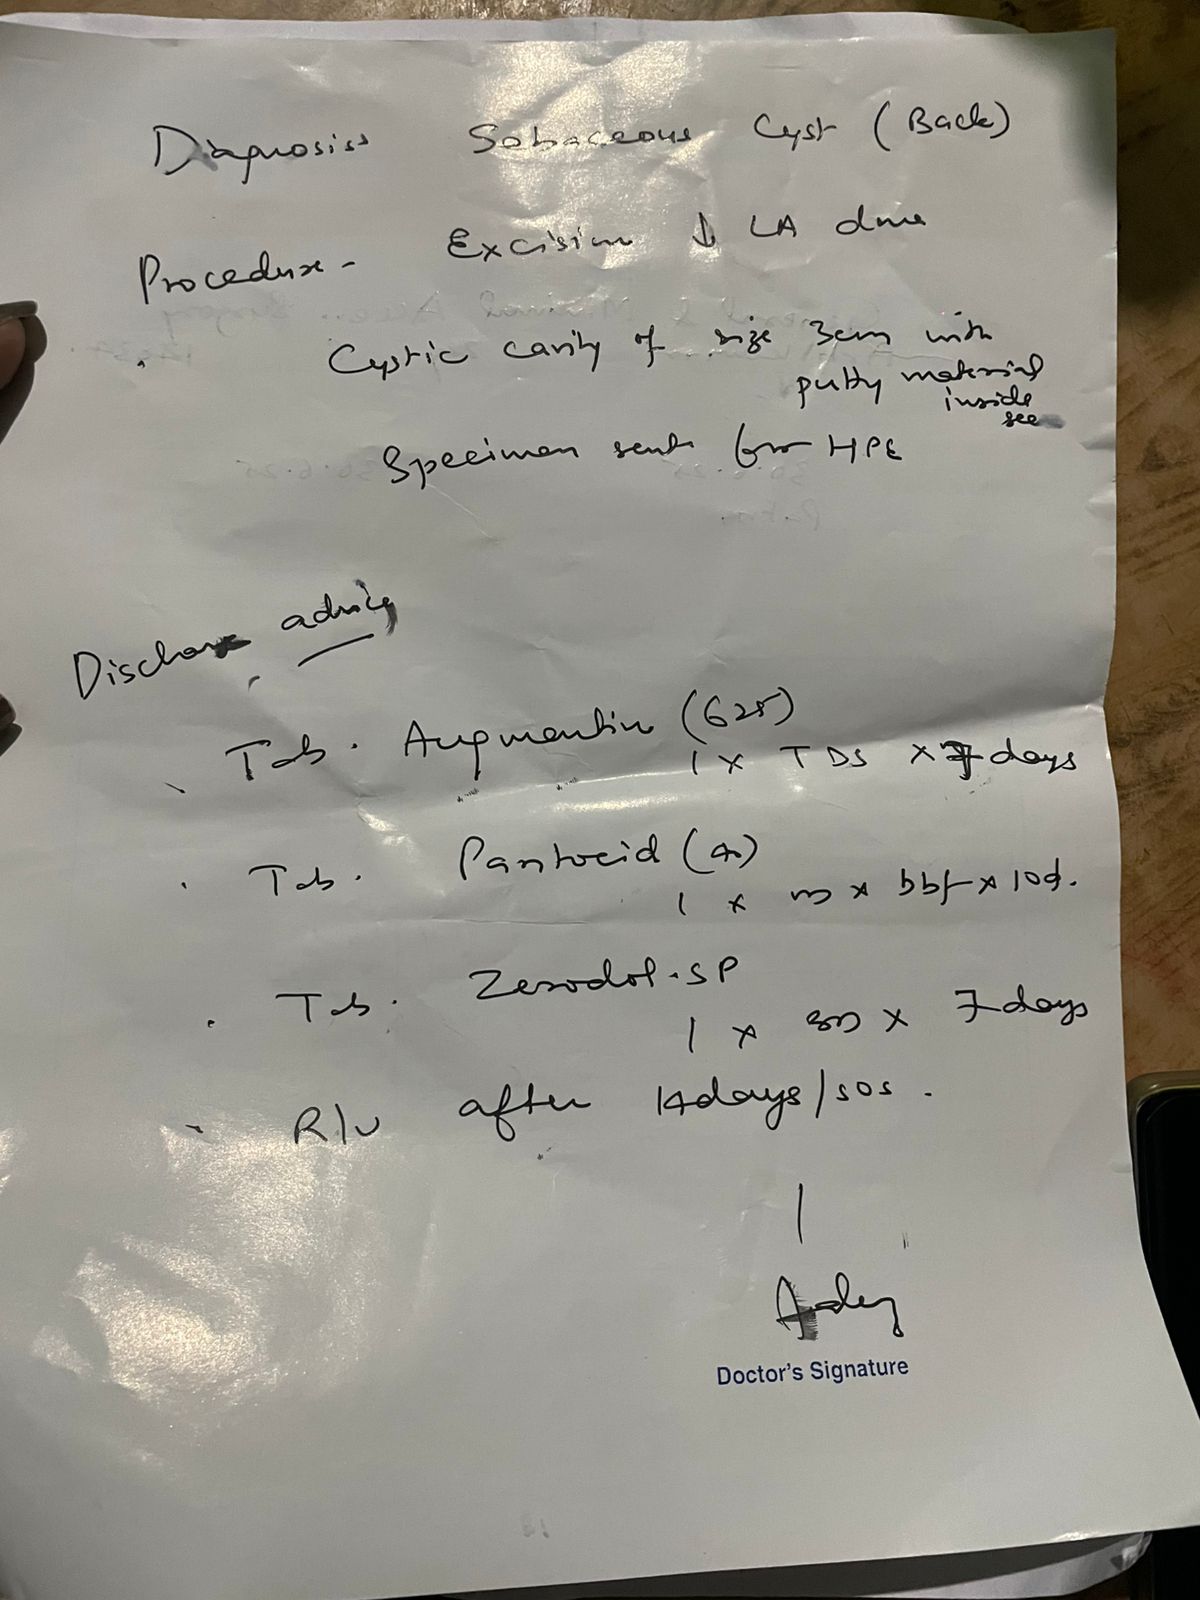 Diagnosis Sebaceous Cyst (Back)
Procedure - Excision ↓ LA done
Cystic cavity of size 3cm with
putty material
inside
see
Specimen sent for HPE
Discharge advice
Tab. Augmentin (625)
1 x TDS x 7 days
Tab. Pantocid (40)
1 x x bbf x 10d.
Tab. Zerodol-SP
1 x BD x 7 days
R/v after 14days/sos.
Doctor's Signature